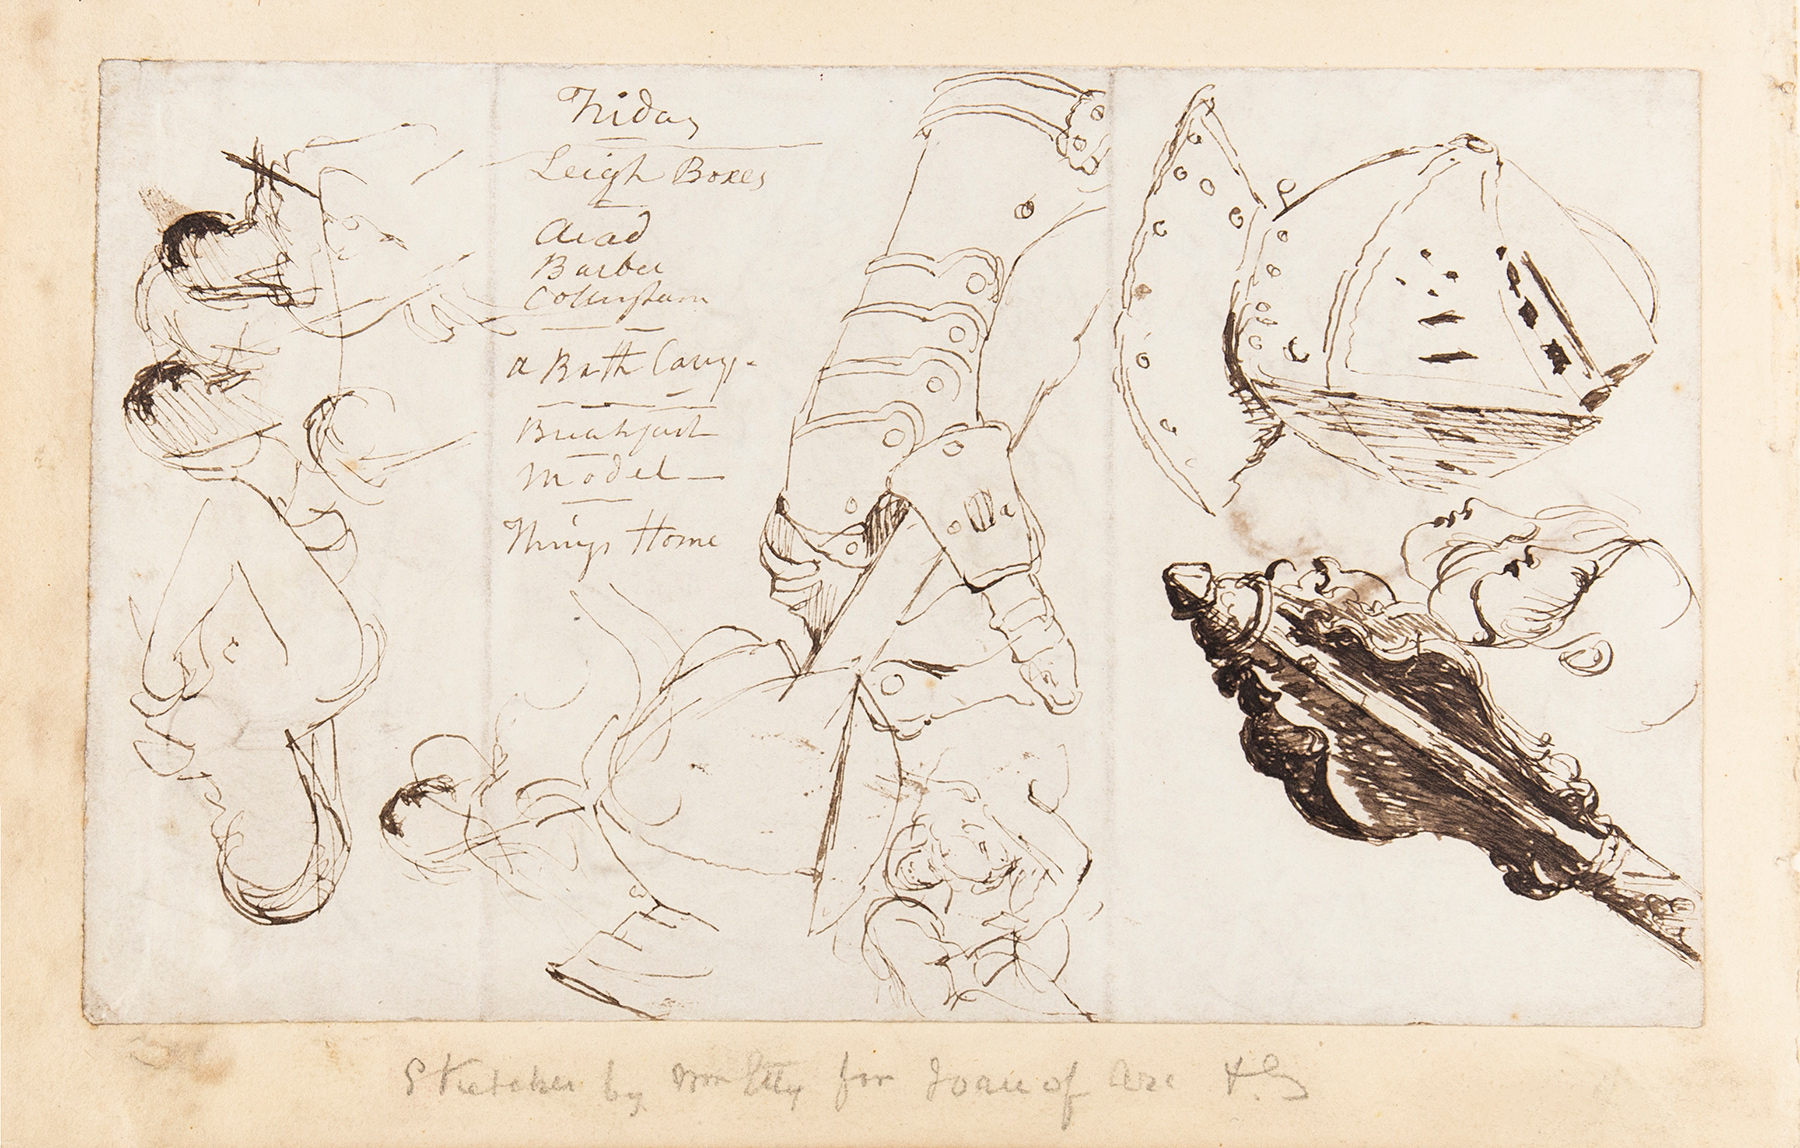 Friday
Leigh Boxes
Acad
Barber
a Bath Carry.
Breakfast
Model
Things Home
Sketches by Wm Etty for Joan of Arc &c